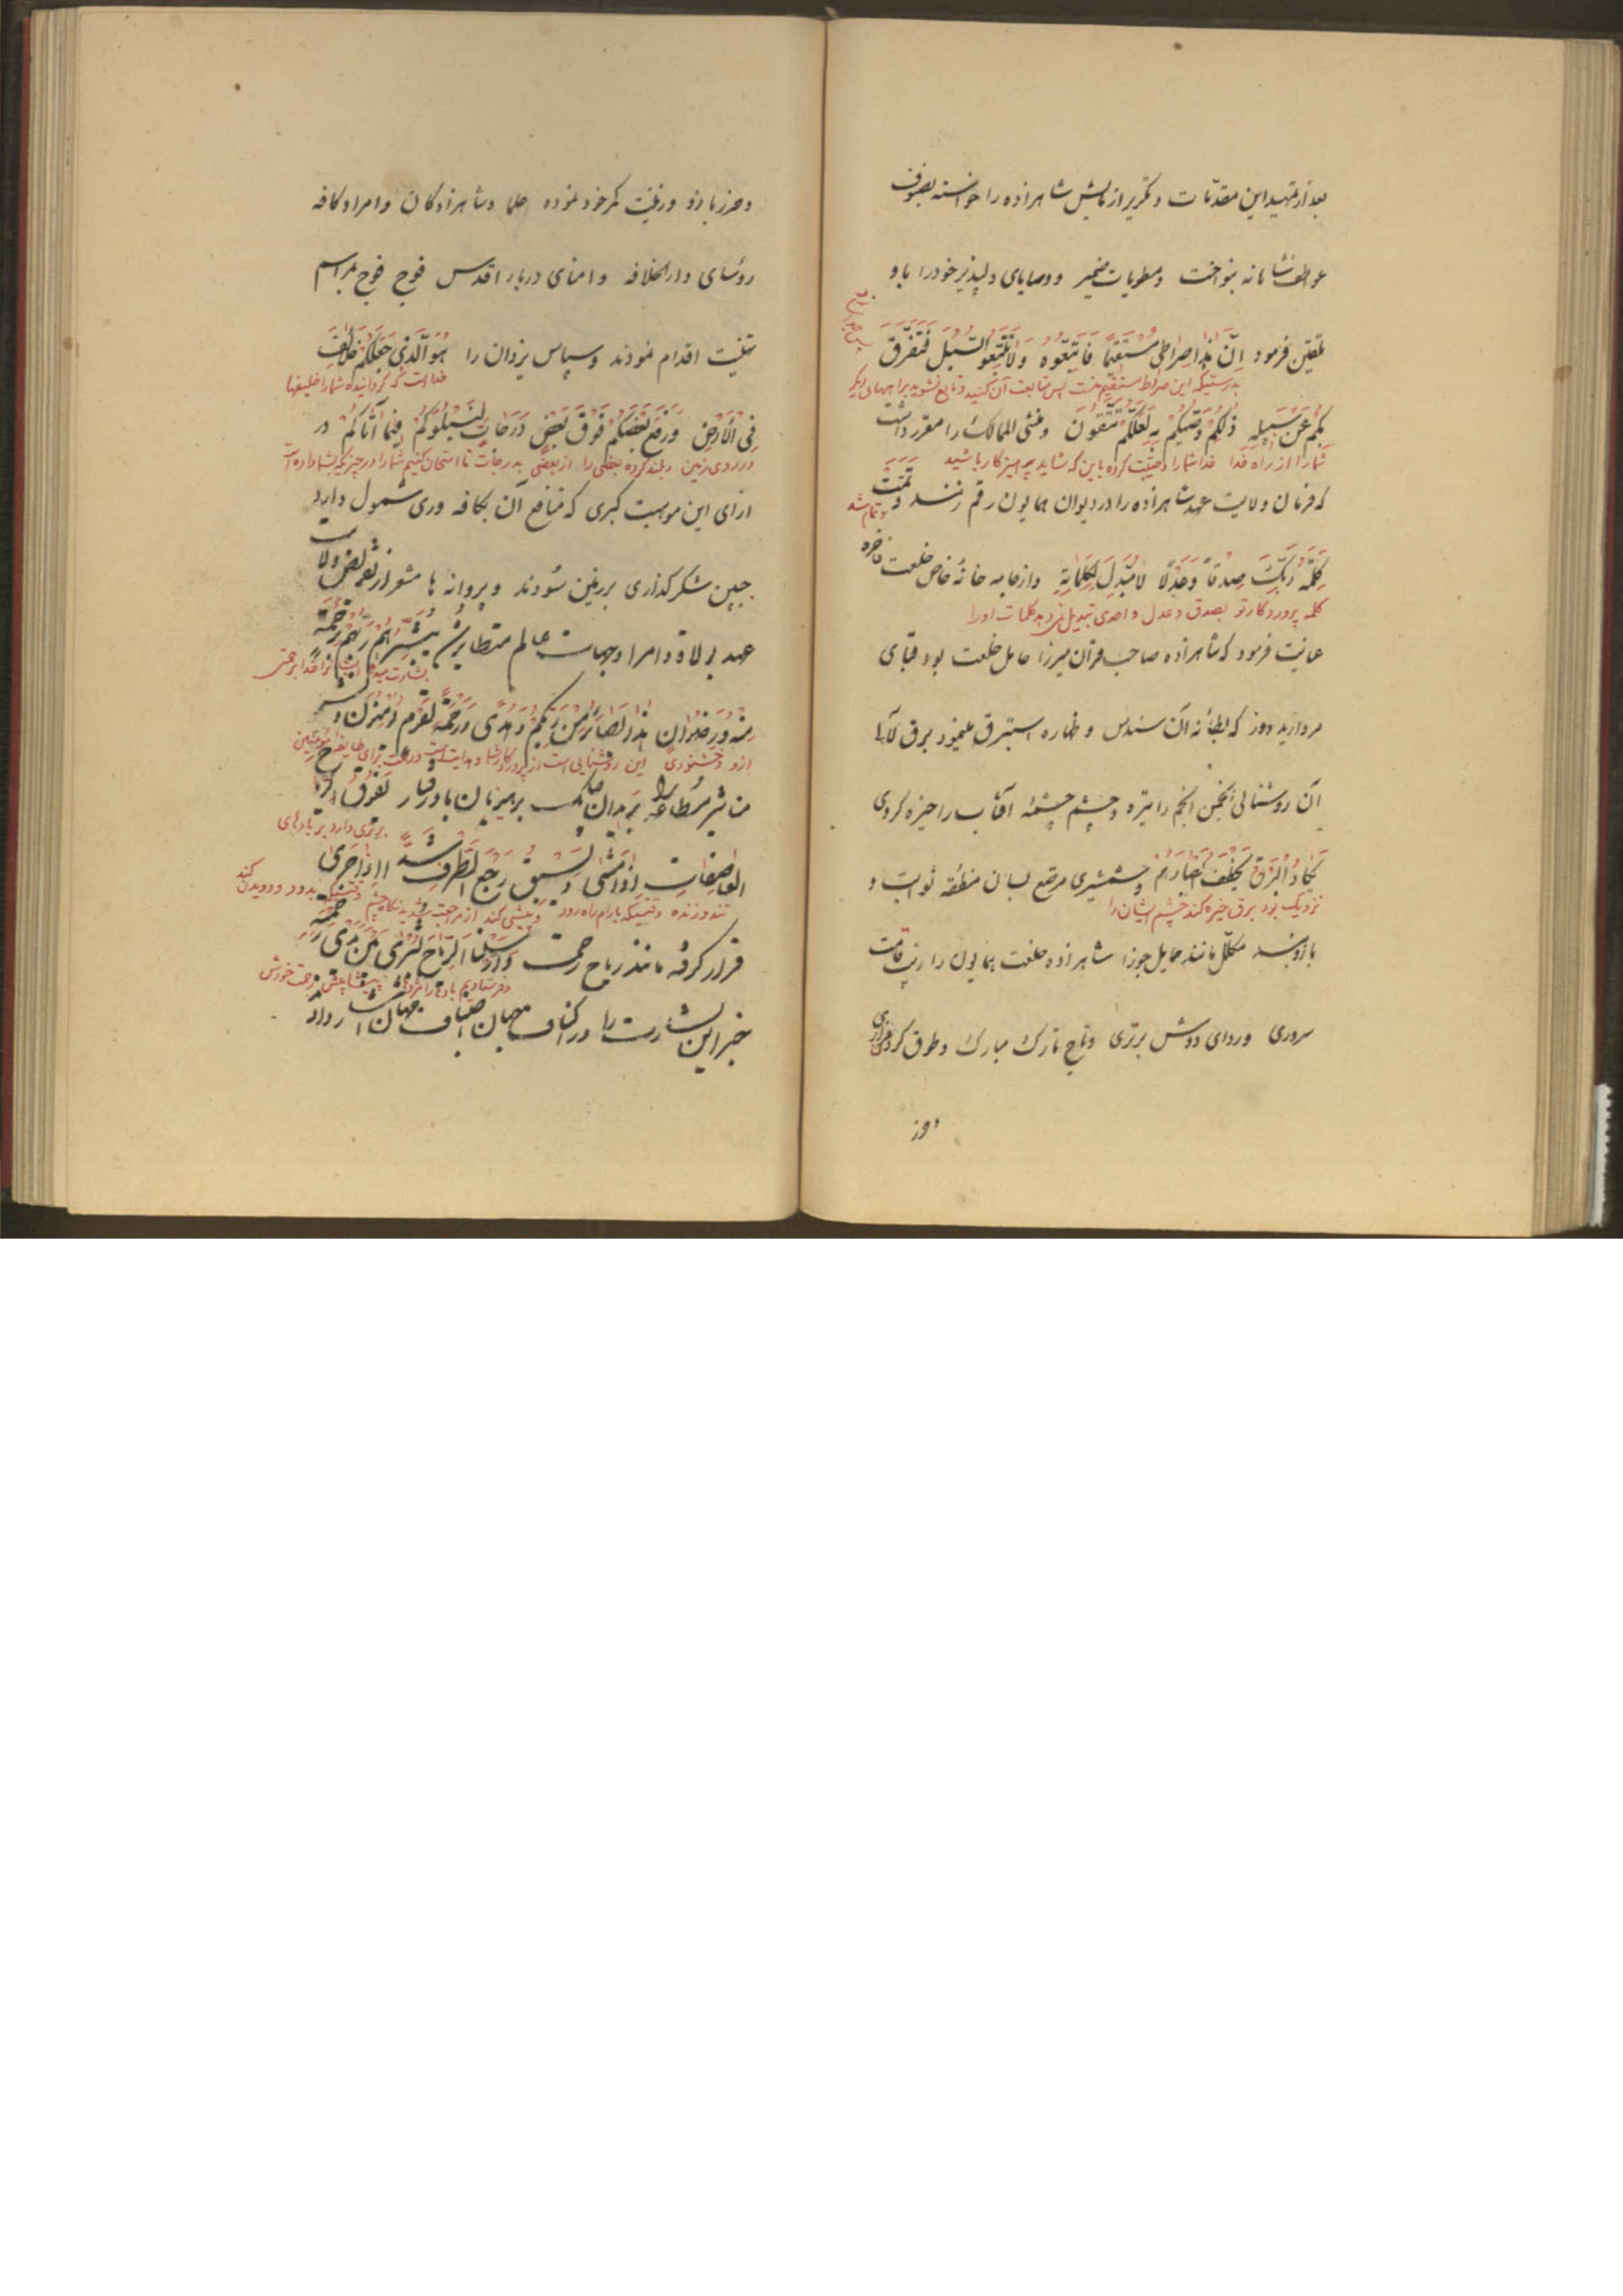 بعد از تمهید این مقدّمات و تکریر ازمایش شاهزاده را خواسته بصنوف
عواطف شاهانه بنواخت و مطویات ضمیر و وصایای دلپذیر خود را باو
تلقین فرمود اِنَّ هٰذا صِراطی مُسْتَقیماً فَاتَّبِعُوهُ وَلاتَتَّبِعُوا السُّبُلَ فَتَفَرَّقَ
بدرستیکه این صراط مستقیم منست پس متابعت آن کنید و تابع نشوید براههای دیگر
بِکُمْ عَنْ سَبیلِهِ ذٰلِکُمْ وَصّیٰکُمْ بِهِ لَعَلَّکُمْ تَتَّقُونَ و منشی الممالک را مقرر داشت
شما را از راه خدا خدا شما را وصیّت کرده باین که شاید پرهیز کار باشید
که فرمان ولایت عهد شاهزاده را در دیوان همایون رقم زنند وَ تَمَّتْ
و تمام شد
کَلِمَةُ رَبِّکَ صِدْقاً وَعَدْلًا لامُبَدِّلَ لِکَلِماتِهِ و از جامه خانهٔ خاص خلعت فاخره
کلمه پروردگار تو بصدق و عدل و احدی تبدیل نمی دهد کلمات او را
عنایت فرمود که شاهزاده صاحب قرآن میرزا حامل خلعت بود قبای
مروارید دوز که بطانه آن سندس و ظهاره استبرق مینمود برق لآلی
آن روشنائی انجمن انجم را تیره و چشم چشمهٔ آفتاب را خیره کردی
یَکادُ الْبَرْقُ یَخْطَفُ اَبْصارَهُمْ و شمشیری مرصع بسان منطقه ثوابت و
نزدیک بود برق خیره کند چشم ایشان را
بازوبند مکلّل مانند حمایل جوزا شاهزاده خلعت همایون را زینت قامت
سروری و ردای دوش برتری و تاج تارک مبارک و طوق گردن
و حرز بازو و زینت کمر خود نموده علما و شاهزادکان و امرا و کافه
رؤسای دار الخلافه و امنای دربار اقدس فوج فوج بمراسم
تهنیت اقدام نمودند و سپاس یزدان را هُوَ الَّذی جَعَلَکُمْ خَلائِفَ
خداست که گردانیده شما را خلیفها
فِی الْاَرْضِ وَرَفَعَ بَعْضَکُمْ فَوْقَ بَعْضٍ دَرَجاتٍ لِیَبْلُوَکُمْ فیما آتاکُمْ در
در روی زمین و بلند کرده بعضی را از بعضی بدرجات تا امتحان کنیم شما را در چیزیکه بشما داده است
ازای این موهبت کبری که منافع آن بکافه وری شمول دارد
جبین شکر گذاری بر زمین سودند و پروانه ها مشعر از تفویض ولایت
عهد بولاة و امرا و جهات عالم متطایر شد یُبَشِّرُهُمْ رَبُّهُمْ بِرَحْمَةٍ
بشارت میدهد ایشانرا خدا برحمتی
مِنْهُ وَرِضْوانٍ هٰذا بَصائِرُ مِنْ رَبِّکُمْ وَهُدیً وَرَحْمَةٌ لِقَوْمٍ یُؤْمِنُونَ
ازو و خشنودی این روشنایی است از پروردگار شما و هدایت است و رحمت برای طایفهٔ مؤمنین
برتری دارد بر بادهای
العاصِفاتِ اِذا مَشیٰ وَیَسْبِقُ رَجْعَ الطَّرْفِ شَدّاً اِذا جَریٰ
تند وزنده وقتیکه بارام راه رود و پیشی کند از مراجعت نگاه چشم وقتیکه بدود
قرار گرفته مانند ریاح رحمت وَاَرْسَلْنَا الرِّیاحَ بُشْریٰ بَیْنَ یَدَیْ رَحْمَتِهِ
و فرستادیم بادها را پیشاپیش رحمت خودش
خبر این بشارت را در اکناف جهان